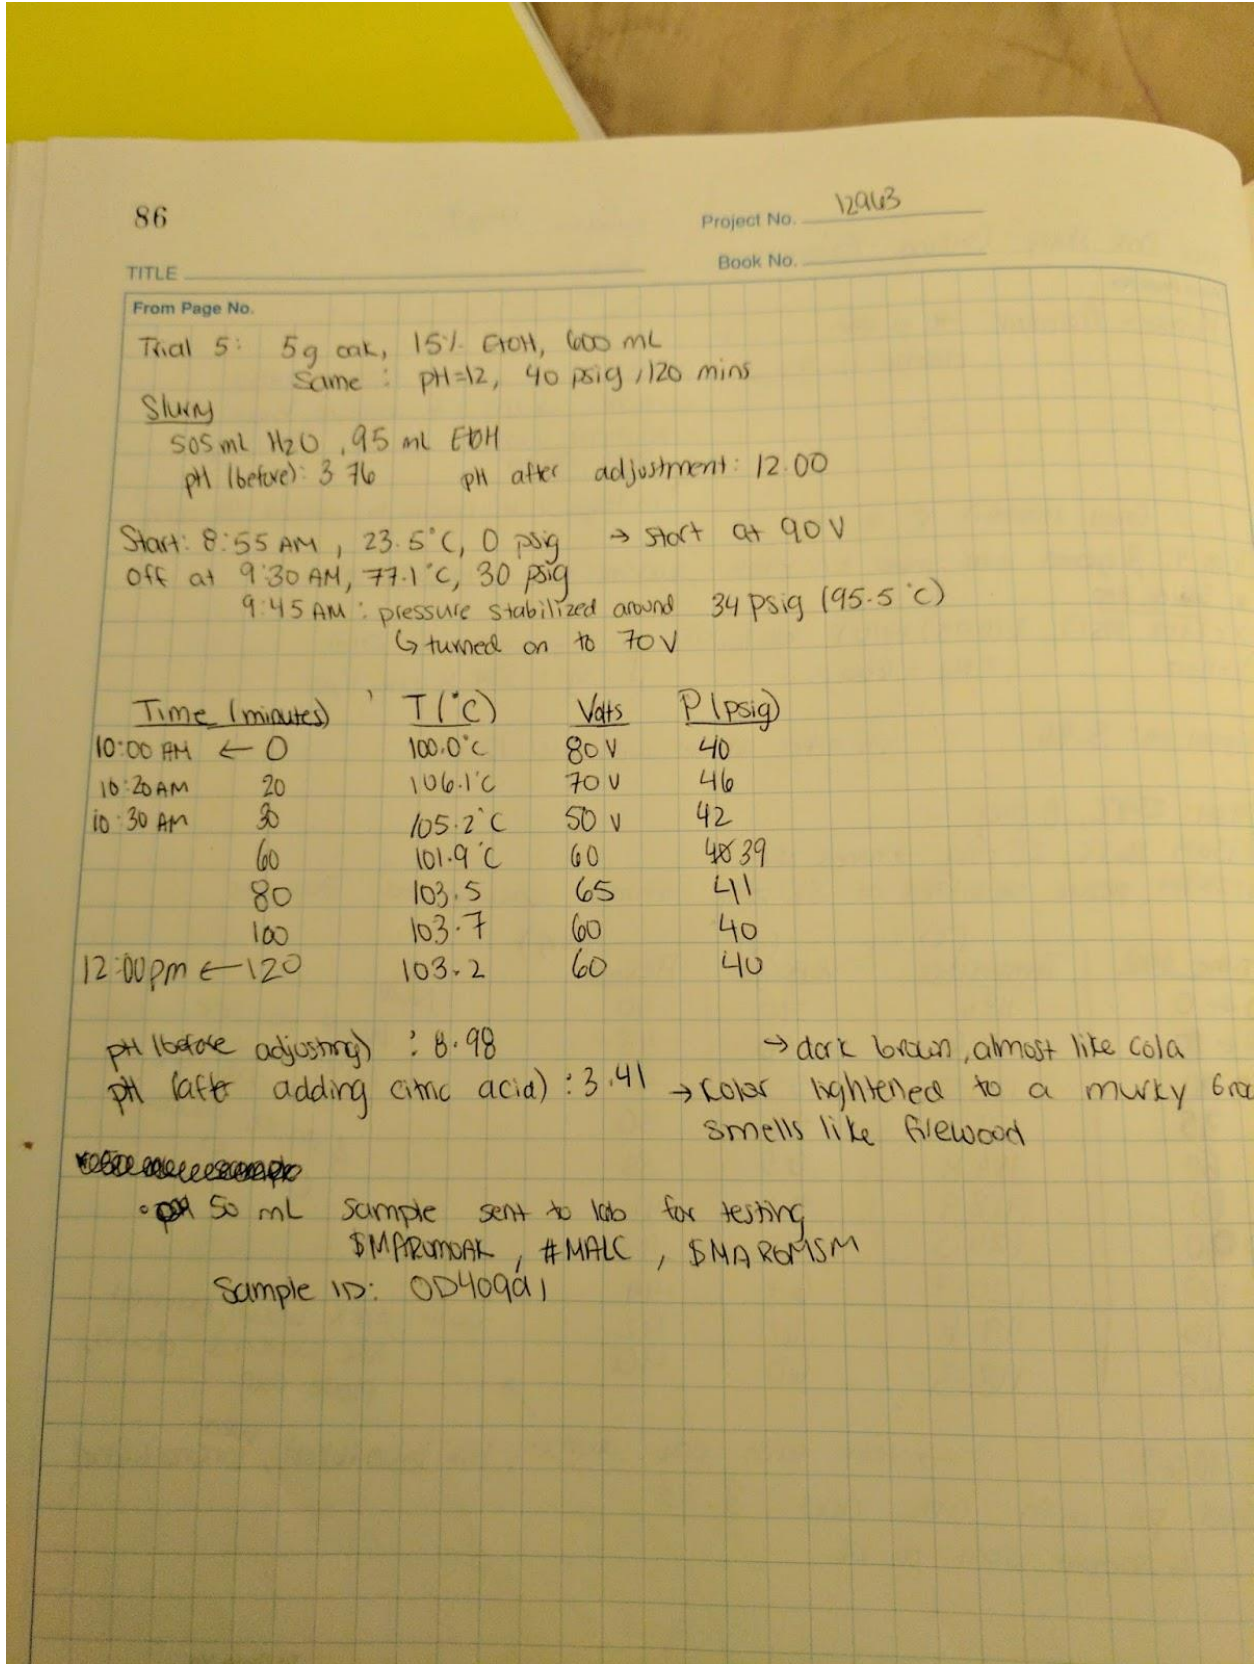 86
Project No. 12963
TITLE
Book No.
From Page No.
Trial 5: 5g oak, 15% EtOH, 600 mL
Same : pH=12, 40 psig, 120 mins
Slurry
505 mL H2O, 95 mL EtOH
pH (before): 3.76 pH after adjustment: 12.00
Start: 8:55 AM, 23.5°C, 0 psig → start at 90 V
Off at 9:30 AM, 77.1°C, 30 psig
9:45 AM: pressure stabilized around 34 psig (95.5°C)
↳ turned on to 70 V
Time (minutes) T(°C) Volts P(psig)
10:00 AM ← 0 100.0°C 80 V 40
10:20 AM 20 106.1°C 70 V 46
10:30 AM 30 105.2°C 50 V 42
60 101.9°C 60 39
80 103.5 65 41
100 103.7 60 40
12:00pm ← 120 103.2 60 40
pH (before adjusting) : 8.98 → dark brown, almost like cola
pH (after adding citric acid) : 3.41 → color lightened to a murky
smells like firewood
50 mL sample sent to lab for testing
, #MALC,
Sample ID: